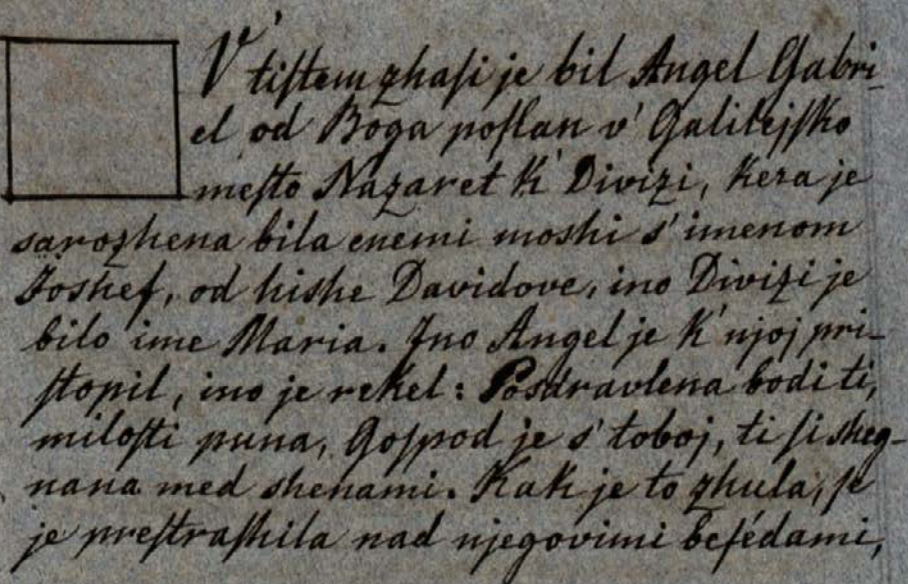 V' tiſtem zhaſi je bil Angel Gabri-
el od Boga poſlan v' Galilejſko
meſto Nazaret k' Divizi, kera je
sarozhena bila enemi moshi s' imenom
Joshef, od hishe Davidove, ino Divizi je
bilo ime Maria. Ino Angel je k' njoj pri-
ſtopil, ino je rekel: Posdravlena bodi ti,
miloſti puna, Goſpod je s' toboj, ti ſi sheg-
nana med shenami. Kak je to zhula, ſe
je preſtraſhila nad njegovimi beſédami,